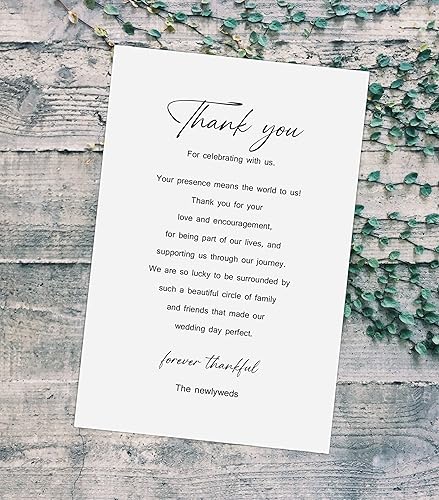 Thank you
For celebrating with us.
Your presence means the world to us!
Thank you for your
love and encouragement,
for being part of our lives, and
supporting us through our journey.
We are so lucky to be surrounded by
such a beautiful circle of family
and friends that made our
wedding day perfect.
forever thankful
The newlyweds